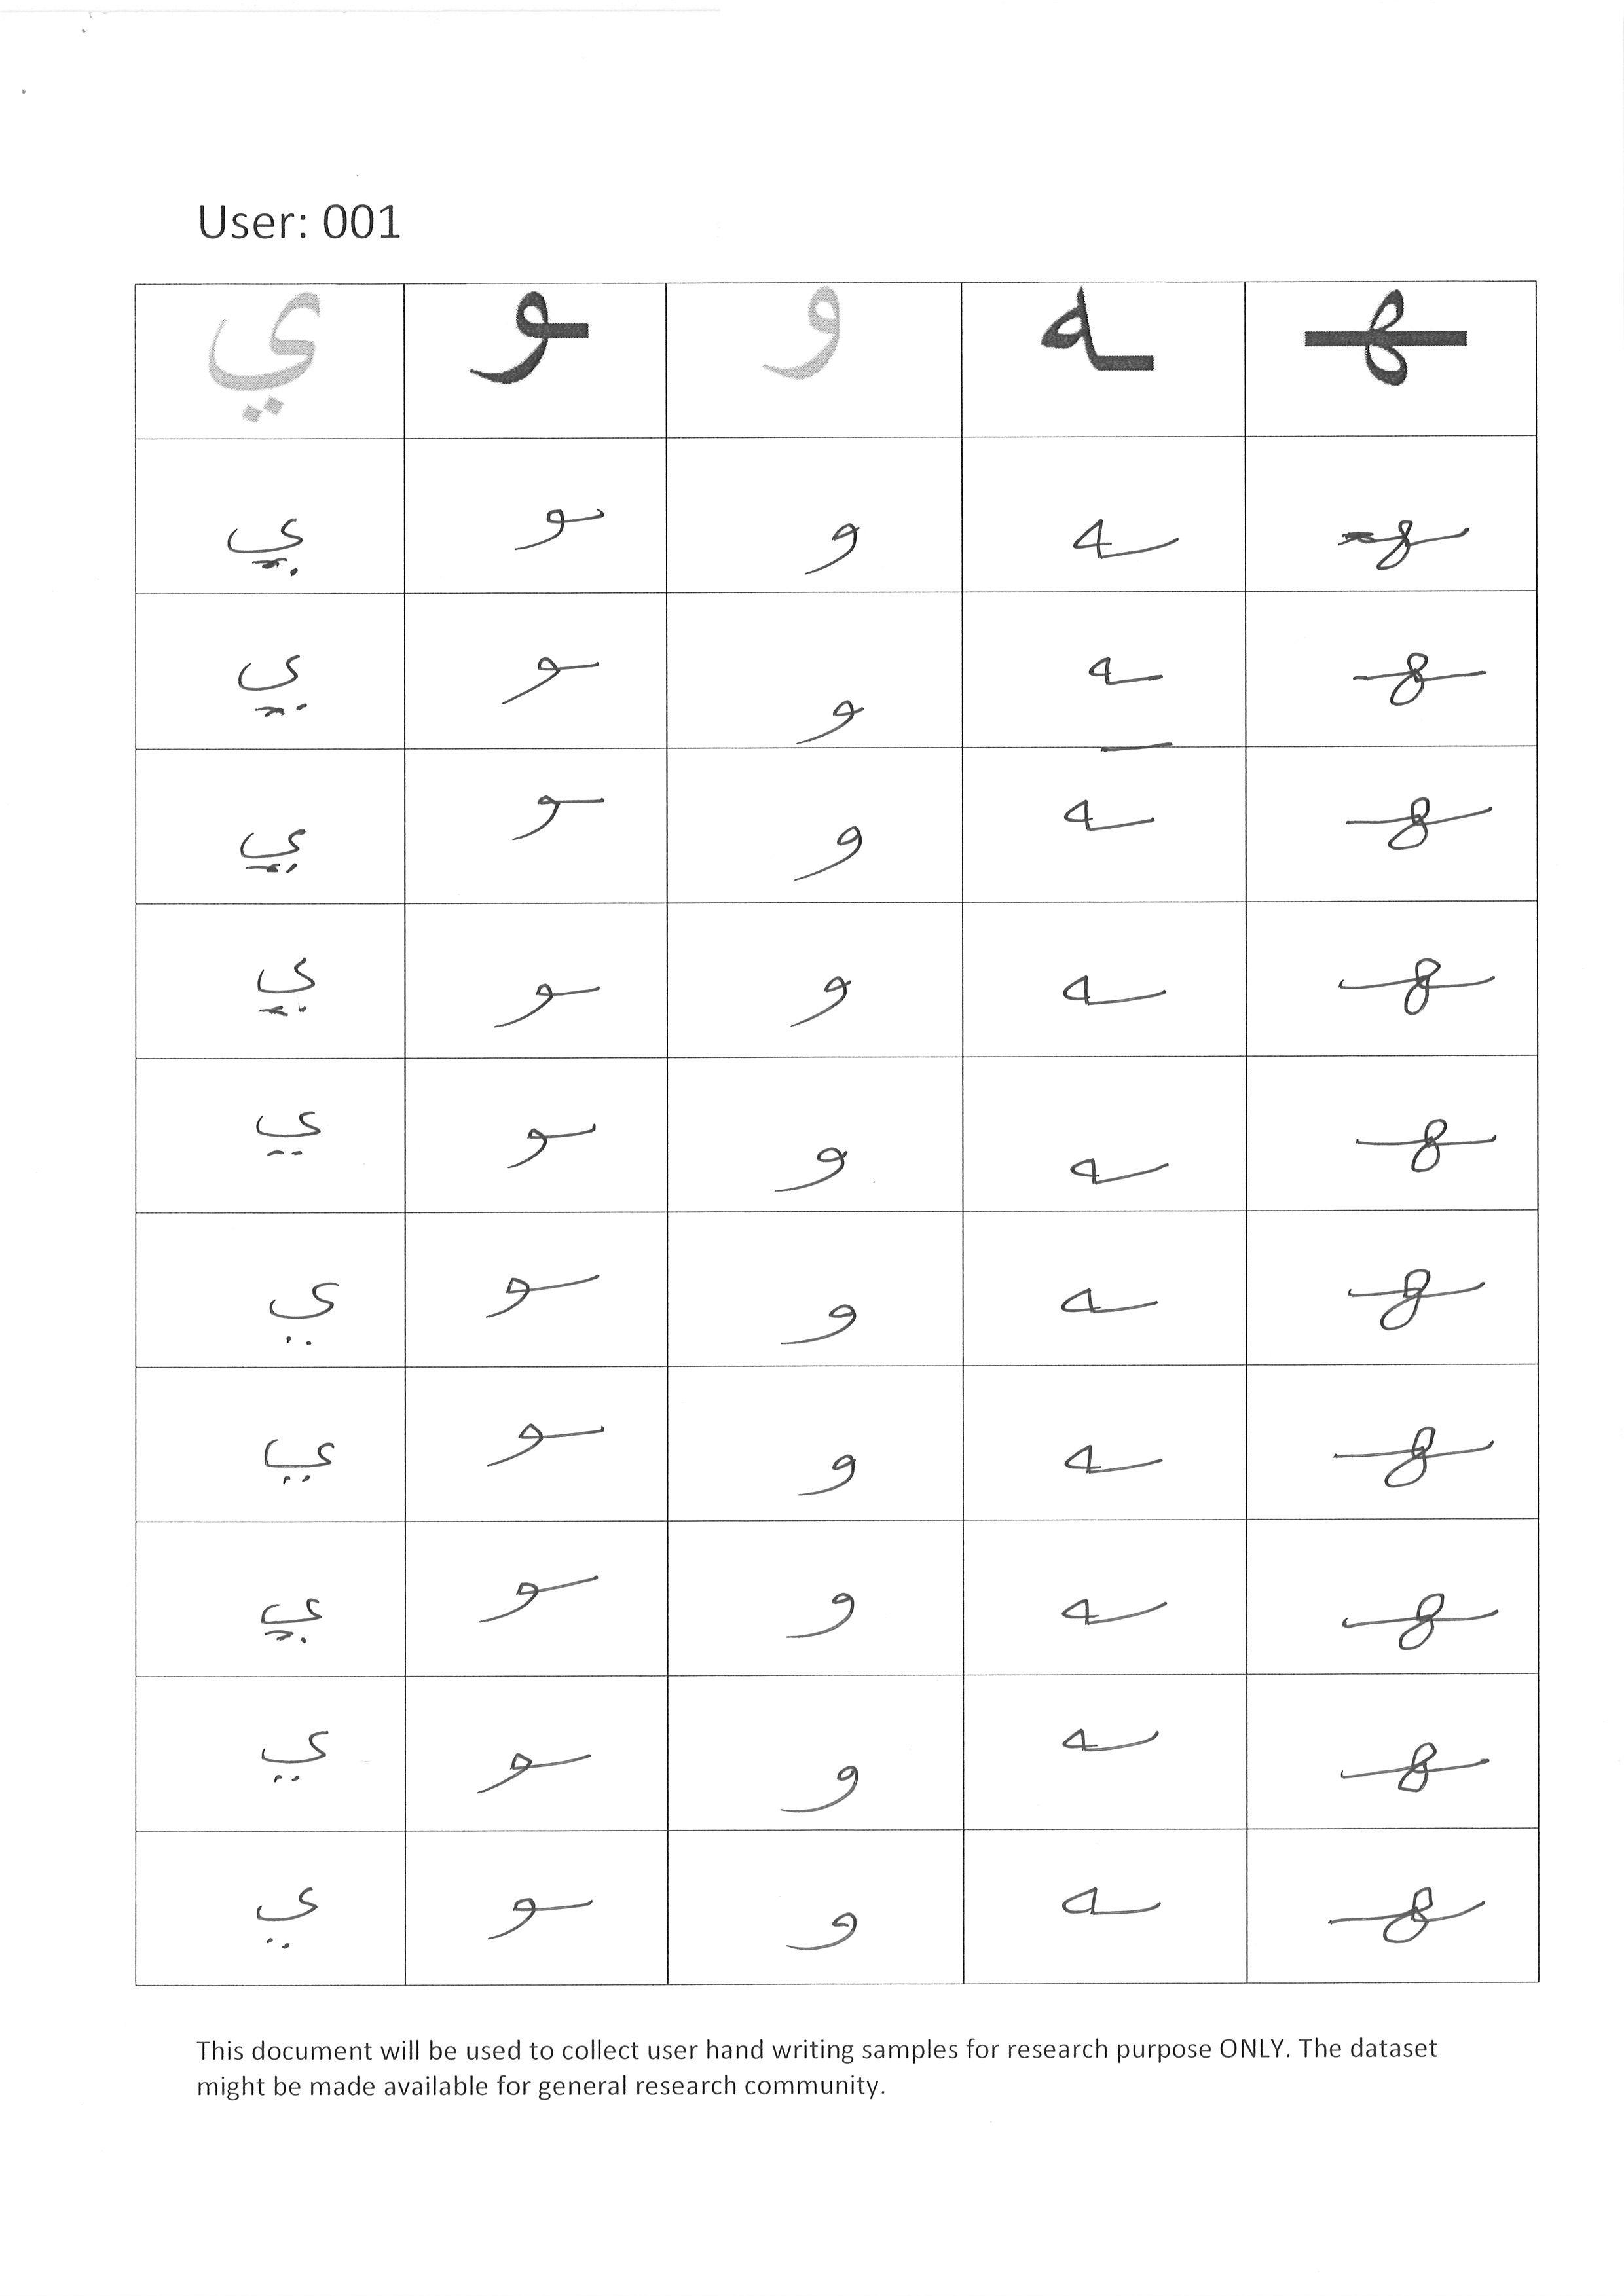 User: 001
ي ـو و ـه ـهـ
ي ـو و ـه ـهـ
ي ـو و ـه ـهـ
ي ـو و ـه ـهـ
ي ـو و ـه ـهـ
ي ـو و ـه ـهـ
ي ـو و ـه ـهـ
ي ـو و ـه ـهـ
ي ـو و ـه ـهـ
ي ـو و ـه ـهـ
ي ـو و ـه ـهـ
This document will be used to collect user hand writing samples for research purpose ONLY. The dataset
might be made available for general research community.